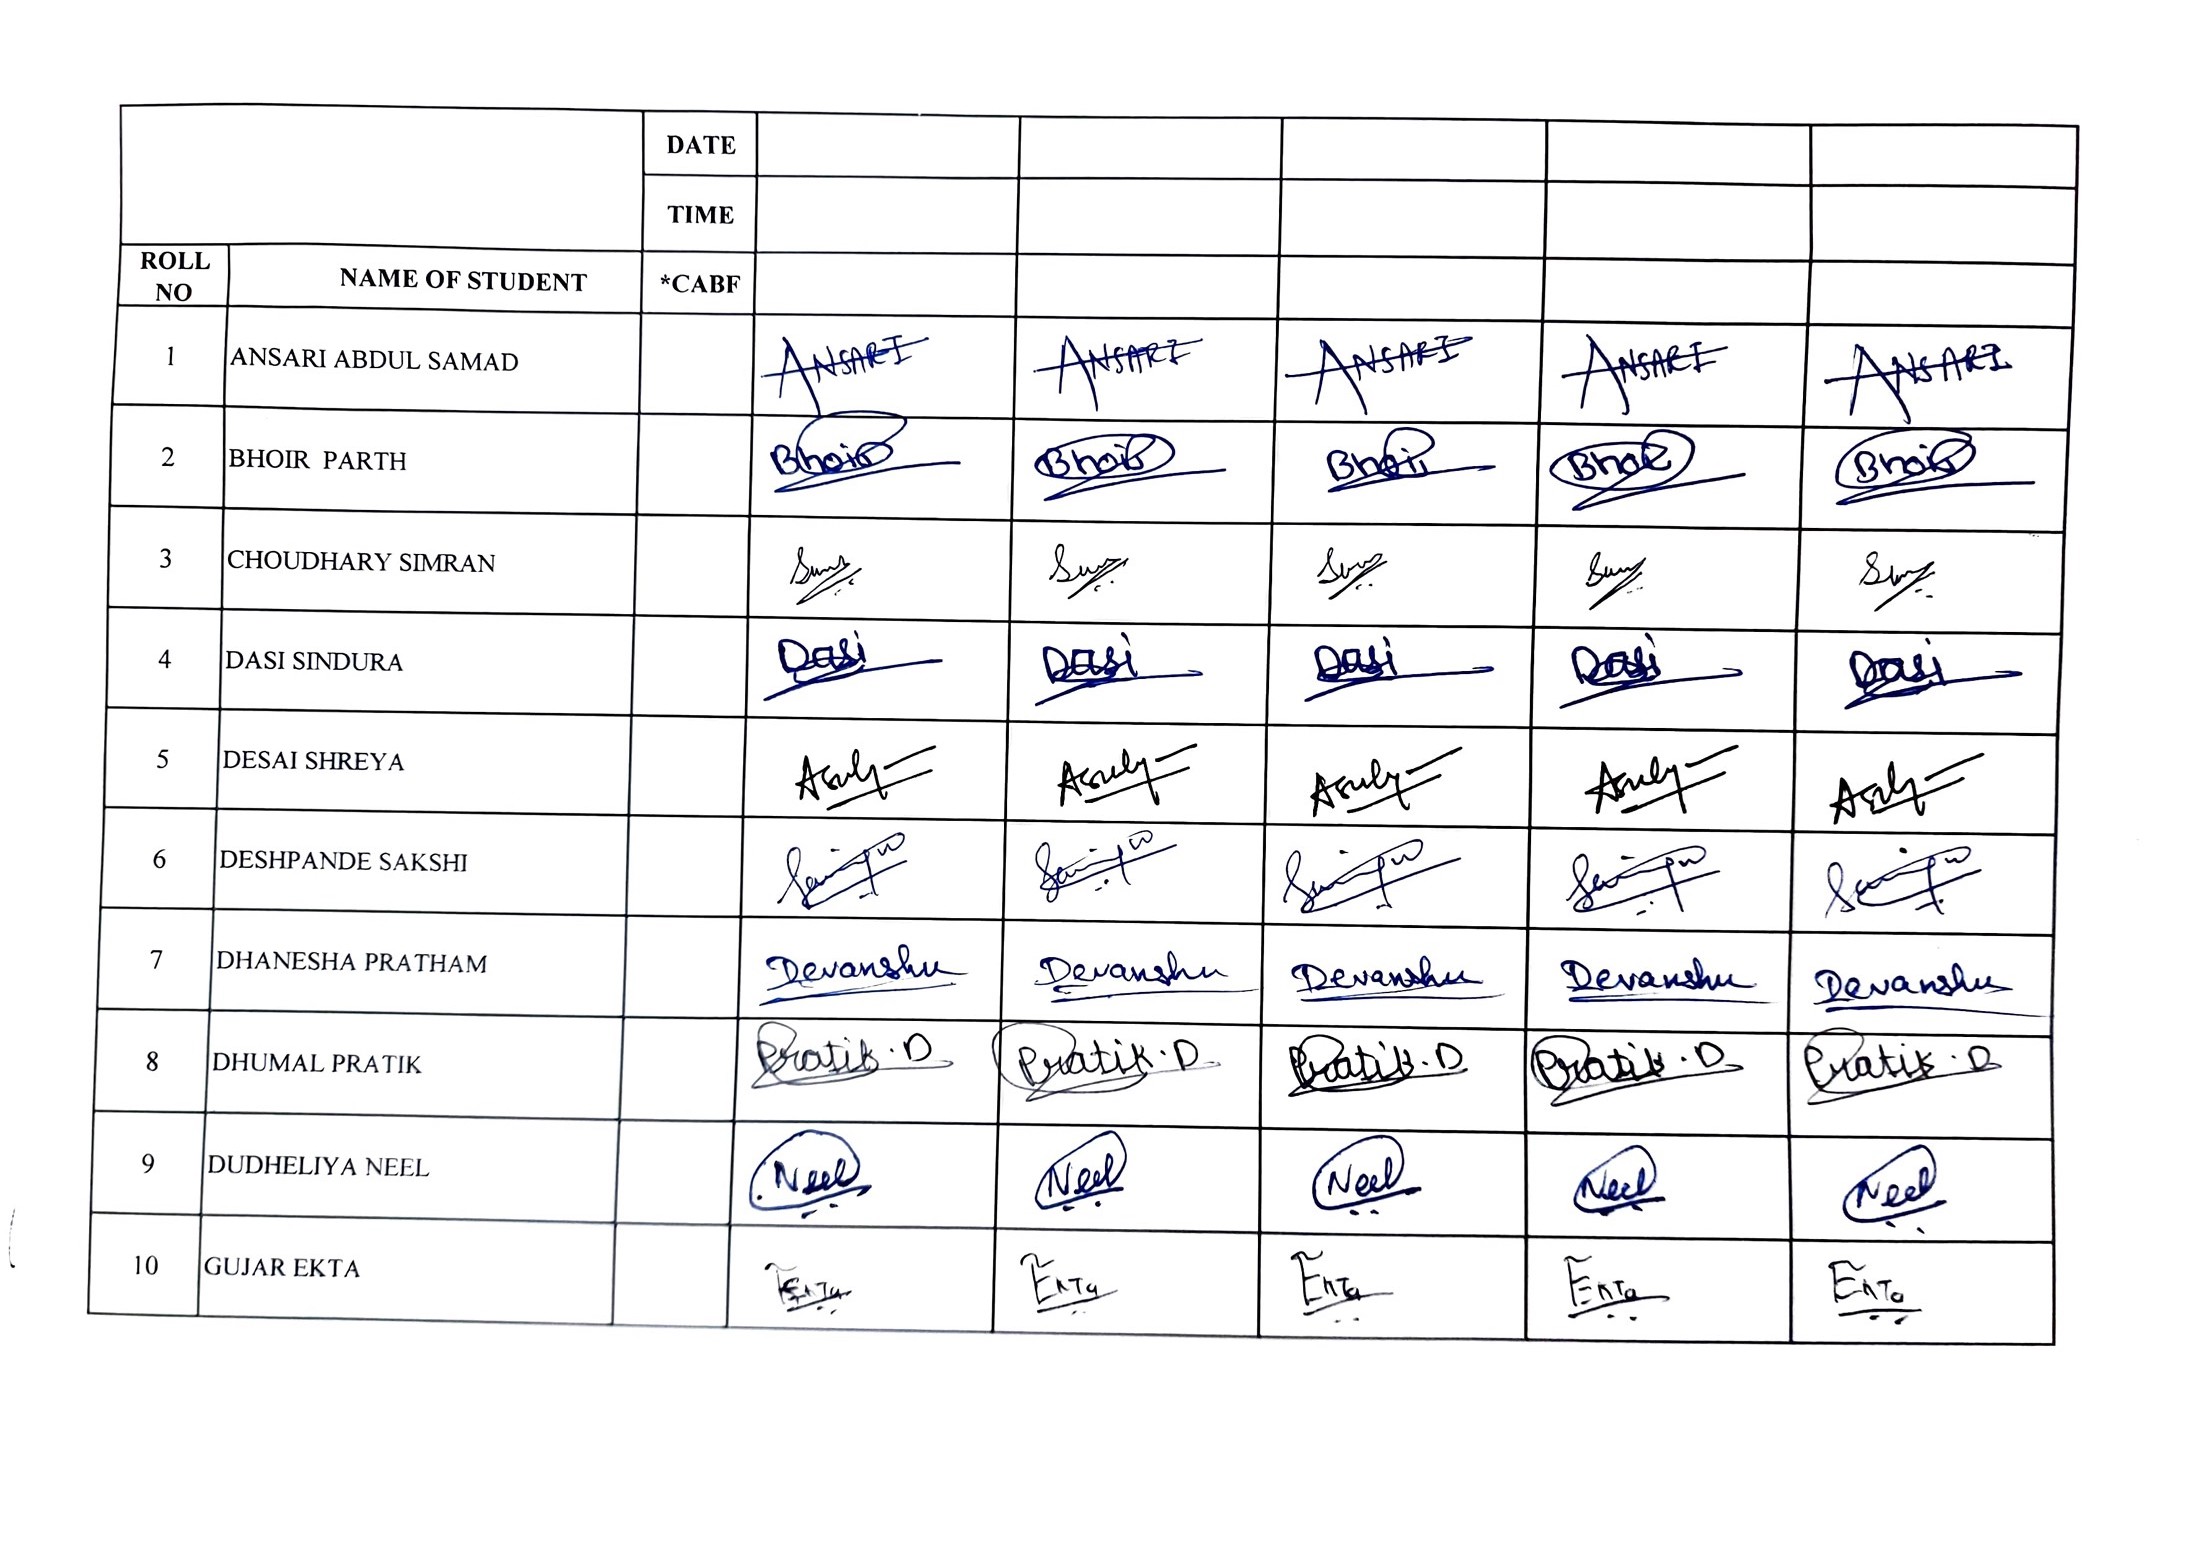 DATE
TIME
ROLL NO NAME OF STUDENT *CABF
1 ANSARI ABDUL SAMAD ANSARI ANSARI ANSARI ANSARI ANSARI
2 BHOIR PARTH Bhoir Bhoir Bhoir Bhoir Bhoir
3 CHOUDHARY SIMRAN
4 DASI SINDURA Dasi Dasi Dasi Dasi Dasi
5 DESAI SHREYA
6 DESHPANDE SAKSHI
7 DHANESHA PRATHAM Devanshu Devanshu Devanshu Devanshu Devanshu
8 DHUMAL PRATIK Pratik.D Pratik.D Pratik.D Pratik.D Pratik.D
9 DUDHELIYA NEEL Neel Neel Neel Neel Neel
10 GUJAR EKTA EKTa EKTa EKTa EKTa EKTa